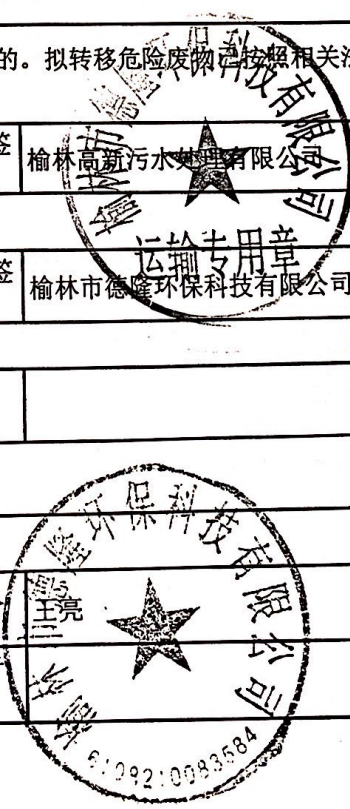 的。拟转移危险废物已按照相关法
签
榆林高新污水处理有限公司
榆林市德隆环保科技有限公司
运输专用章
签
榆林市德隆环保科技有限公司
王亮
榆林市德隆环保科技有限公司
6109210083584